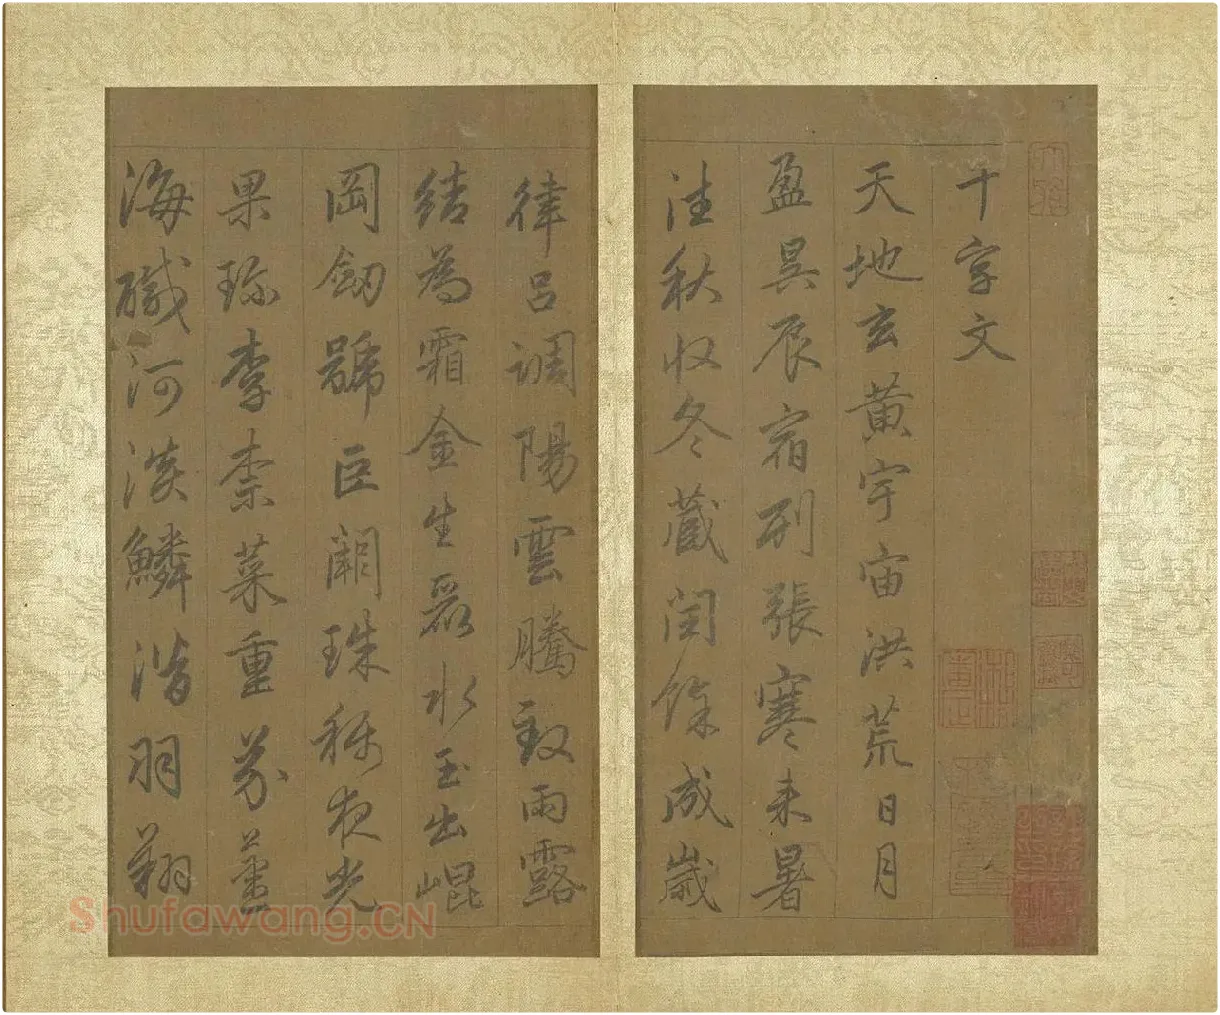 千字文
天地玄黄宇宙洪荒日月
盈昃辰宿列張寒来暑
往秋收冬藏閏餘成歲
律吕調陽雲騰致雨露
結為霜金生麗水玉出崐
岡劒號巨闕珠稱夜光
果珎李柰菜重芥薑
海醎河淡鱗潛羽翔
Shufawang.CN